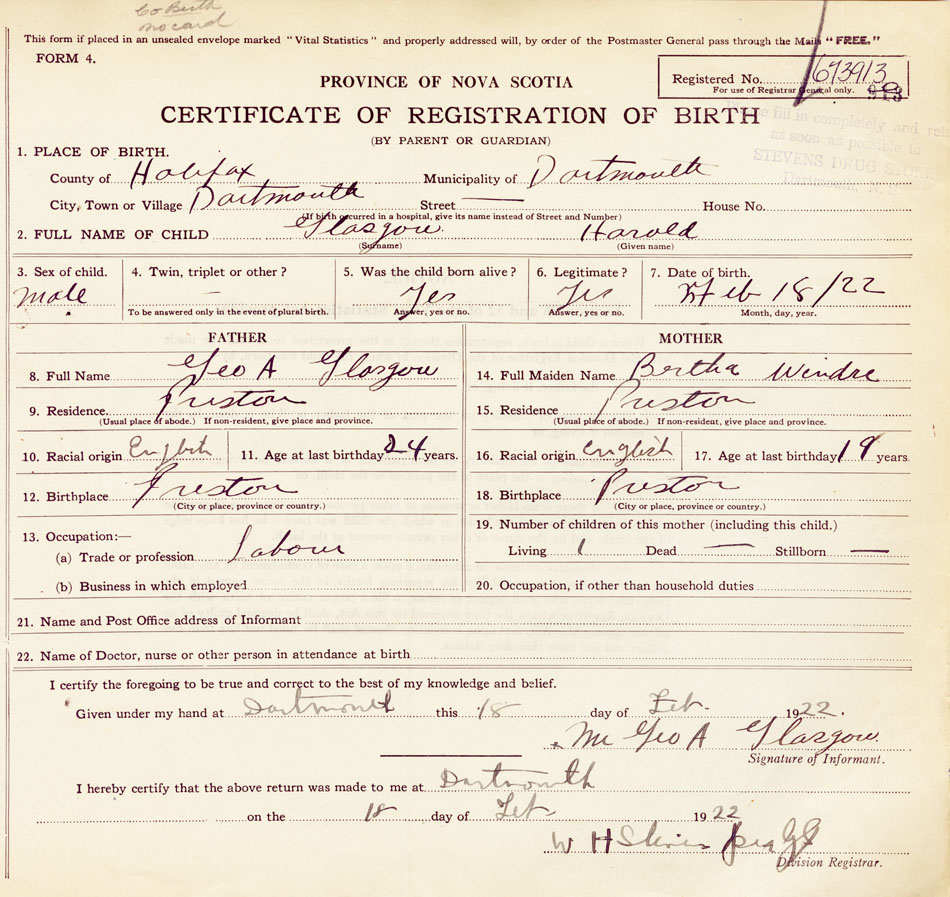 Co Birth
no card
This form if placed in an unsealed envelope marked "Vital Statistics" and properly addressed will, by order of the Postmaster General pass through the Mails "FREE."
FORM 4.
PROVINCE OF NOVA SCOTIA
Registered No. 673913
For use of Registrar General only.
CERTIFICATE OF REGISTRATION OF BIRTH
(BY PARENT OR GUARDIAN)
fill in completely and
as soon as possible to
STEVENS DRUG STORE
Dartmouth, N. S.
1. PLACE OF BIRTH.
County of Halifax Municipality of Dartmouth
City, Town or Village Dartmouth Street — House No.
(If birth occurred in a hospital, give its name instead of Street and Number)
2. FULL NAME OF CHILD Glasgow Harold
(Surname) (Given name)
3. Sex of child. 4. Twin, triplet or other? 5. Was the child born alive? 6. Legitimate? 7. Date of birth.
male — Yes Yes Feb 18/22
To be answered only in the event of plural birth. Answer, yes or no. Answer, yes or no. Month, day, year.
FATHER MOTHER
8. Full Name Geo A Glasgow 14. Full Maiden Name Bertha
9. Residence. Preston 15. Residence Preston
(Usual place of abode.) If non-resident, give place and province. (Usual place of abode.) If non-resident, give place and province.
10. Racial origin English 11. Age at last birthday 24 years. 16. Racial origin English 17. Age at last birthday 19 years.
12. Birthplace Preston 18. Birthplace Preston
(City or place, province or country.) (City or place, province or country.)
13. Occupation:— 19. Number of children of this mother (including this child.)
(a) Trade or profession labour Living 1 Dead — Stillborn —
(b) Business in which employed 20. Occupation, if other than household duties
21. Name and Post Office address of Informant
22. Name of Doctor, nurse or other person in attendance at birth
I certify the foregoing to be true and correct to the best of my knowledge and belief.
Given under my hand at Dartmouth this 18 day of Feb. 1922.
Mr Geo A Glasgow.
Signature of Informant.
I hereby certify that the above return was made to me at Dartmouth
on the 18 day of Feb 1922
W H
Division Registrar.